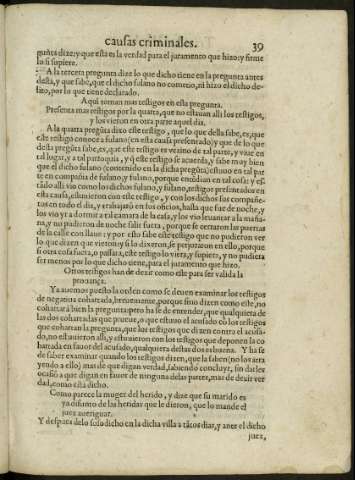 causas criminales. 39
gũta dize: y que esta es la verdad para el juramento que hizo: y firme
lo si supiere.
A la tercera pregunta dize lo que dicho tiene en la pregunta antes
desta, y que sabe, que el dicho fulano no cometio, ni hizo el dicho de-
lito, por lo que tiene declarado.
Aqui toman mas testigos en esta pregunta.
Presenta mas testigos por la quarta, que no estauan alli los testigos,
y los vieron en otra parte aquel dia.
A la quarta pregũta dixo este testigo, que lo que della sabe, es, que
este testigo conoce a fulano (en esta causa presentado) y que de lo que
desta pregũta sabe, es, que este testigo es vezino de tal parte, y viue en
tal lugar, y a tal parroquia, y q̃ este testigo se acuerda, y sabe muy bien
que el dicho fulano (contenido en la dicha pregũta) estuuo en tal par
te en compañia de fulano y fulano, porque comiã en tal cosa: y es-
tãdo alli vio como los dichos fulano, y fulano, testigos presentados en
esta causa, estuuieron con este testigo, y con los dichos sus compañe-
ros en todo el dia, y trabajarõ en sus oficios, hasta que fue de noche, y
los vio yr a dormir a tal camara de la casa, y los vio leuantar a la maña-
na, y no pudieron de noche salir fuera, porque se cerraron las puertas
de la calle con llaue: y por esto sabe este testigo que no pudieron ver
lo que dizen que vieron: y si lo dixeron, se perjuraron en ello, porque
si otra cosa fuera, o passara, este testigo lo viera, y supiera, y no pudiera
ser menos por lo que dicho tiene, para el juramento que hizo.
Otros testigos han de dezir como este para ser valida la
prouança.
Ya auemos puesto la orden como se deuen examinar los testigos
de negatiua cohartada, breuemente, porque sino dizen como este, no
cohartarà bien la pregunta: pero ha se de entender, que qualquiera de
las dos cohartadas que prueue, o que estuuo el acusado cõ los testigos
que cohartan la pregunta, que los testigos que dizen contra el acusa-
do, no estuuieron alli, y estuuieron con los testigos que deponen la co
hartada en fauor del acusado, qualquiera destas dos releuena. Y ha se
de saber examinar quando los testigos dizen, que la saben (no los atra
yendo a ello) mas de que digan verdad, sabiendo concluyr, sin darles
ocasiõ a que digan en fauor de ninguna delas partes, mas de dezir ver
dad, como està dicho.
Como parece la muger del herido, y dize que su marido es
ya difunto de las heridas que le dieron, que lo mande el
juez aueriguar.
Y despues delo suso dicho en la dicha villa a tãtos dias, y ante el dicho
juez,